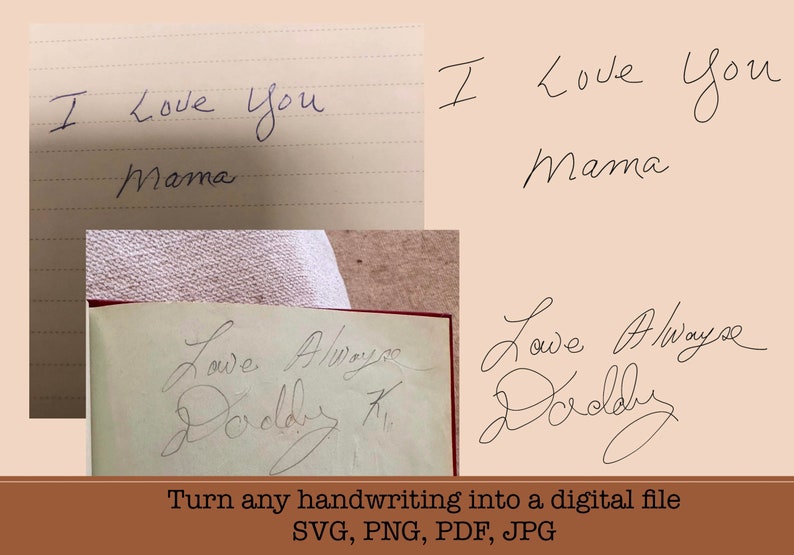 I Love You
Mama
I Love You
Mama
Love Alwayse
Daddy
Love Alwayse
Daddy
Turn any handwriting into a digital file
SVG, PNG, PDF, JPG